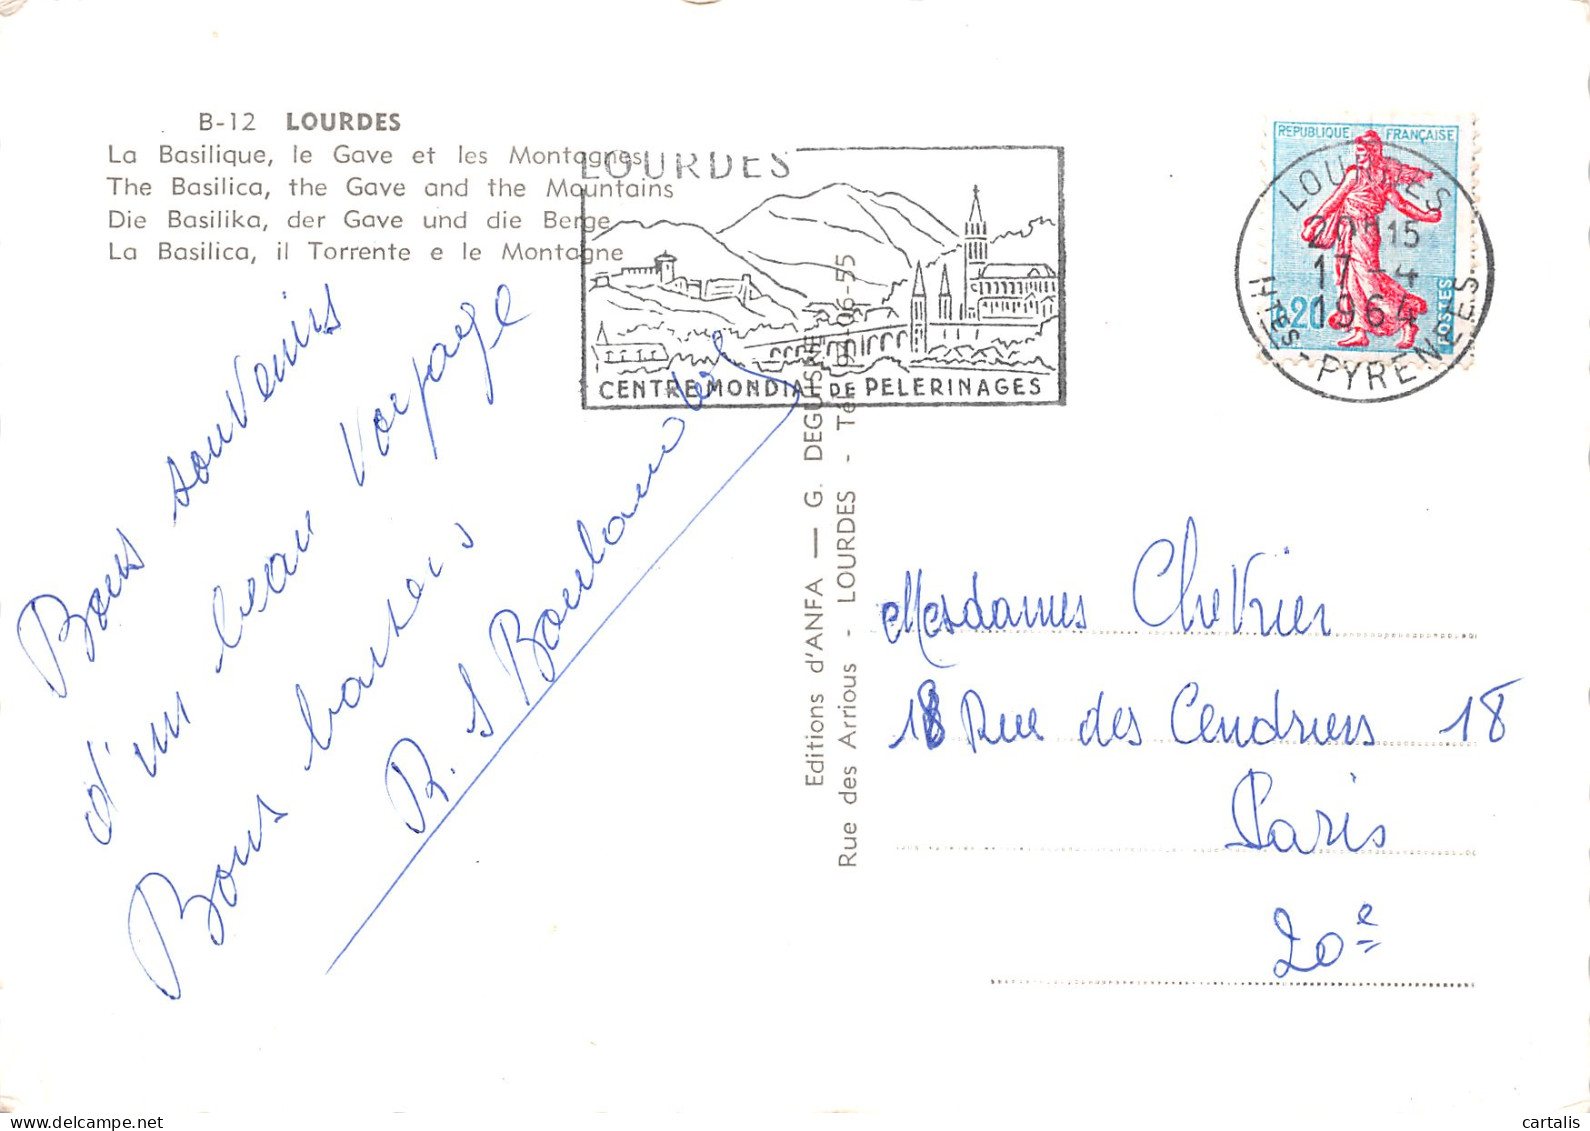 B-12 LOURDES
La Basilique, le Gave et les Montagnes
The Basilica, the Gave and the Mountains
Die Basilika, der Gave und die Berge
La Basilica, il Torrente e le Montagne
LOURDES
CENTRE MONDIAL DE PELERINAGES
REPUBLIQUE FRANÇAISE
0,20
POSTES
LOURDES
20H15
17-4
1964
Htes-PYRENEES
Bons souvenirs
d'un beau voyage
Bons baisers
R. S
Editions d'ANFA — G. DEGUISNE
Rue des Arrious - LOURDES - Tel. 06-55
Mesdames Chevrier
18 Rue des Cendriers 18
Paris
20e
delcampe.net
cartalis